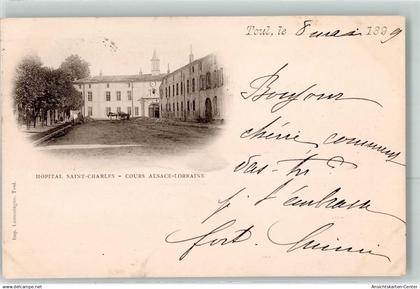 Toul, le 8 mai 1899
Bonjour
chérie comment
vas-tu
je t'embrasse
fort,
HOPITAL SAINT-CHARLES - COURS ALSACE-LORRAINE
Toul.
www.ansichtskarten-center.de
Ansichtskarten-Center